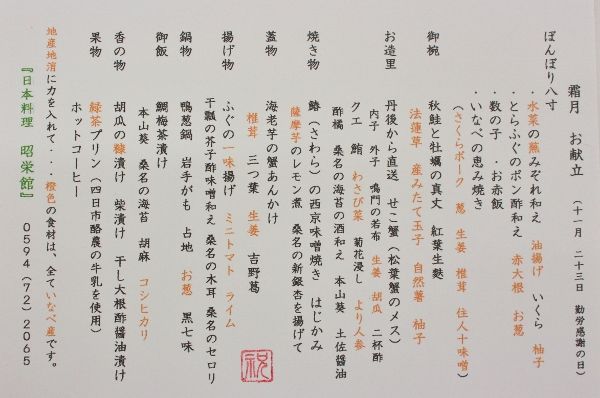 霜月　お献立　（十一月　二十三日　勤労感謝の日）
ぼんぼり八寸
・水菜の蕪みぞれ和え　油揚げ　いくら　柚子
・とらふぐのポン酢和え　赤大根　お葱
・数の子　・お赤飯
・いなべの恵み焼き
（さくらポーク　葱　生姜　椎茸　住人十味噌）
御椀　秋鮭と牡蠣の真丈　紅葉生麩
法蓮草　産みたて玉子　自然薯　柚子
お造里　丹後から直送、せこ蟹（松葉蟹のメス）
内子　外子　鳴門の若布　生姜　胡瓜　二杯酢
クエ　鮪　わさび菜　菊花浸し　より人参
酢橘　桑名の海苔の酒和え　本山葵　土佐醤油
焼き物　鰆（さわら）の西京味噌焼き　はじかみ
薩摩芋のレモン煮　桑名の新銀杏を揚げて
蓋物　海老芋の蟹あんかけ
椎茸　三つ葉　生姜　吉野葛
揚げ物　ふぐの一味揚げ　ミニトマト　ライム
干瓢の芥子酢味噌和え　桑名の木耳　桑名のセロリ
鍋物　鴨葱鍋　岩手がも　占地　お葱　黒七味
御飯　鯛梅茶漬け
本山葵　桑名の海苔　胡麻　コシヒカリ
香の物　胡瓜の糠漬け　柴漬け　干し大根酢醤油漬け
果物　緑茶プリン（四日市酪農の牛乳を使用）
ホットコーヒー
地産地消に力を入れて・・・橙色の食材は、全ていなべ産です。
『日本料理　昭栄館』　0594（72）2065
祝